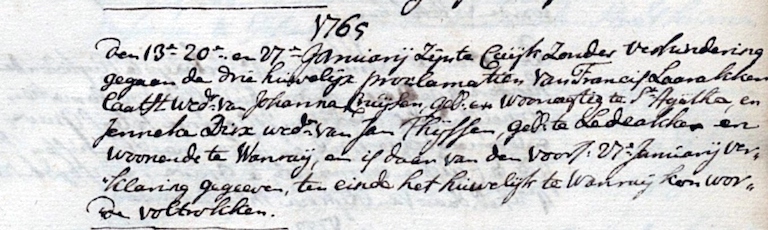 1765
Den 13.n 20.n en 27.n Januarij zijn te Cuijk zonder verhindering
gegaan de drie huwelijx proclamatien van Francis Laarakkers
laatst wedr. van Johanna Cruijsen, geb. en woonagtig te St. Agatha, en
Jenneke Dirx wedr. van Jan Thijssen, geb. te Ledeakker en
woonende te Wanroij, en is daar van den voors. 27.n Januarij ver-
klaring gegeeven, ten einde het huwelijk te Wanroij kon wor-
de voltrokken.